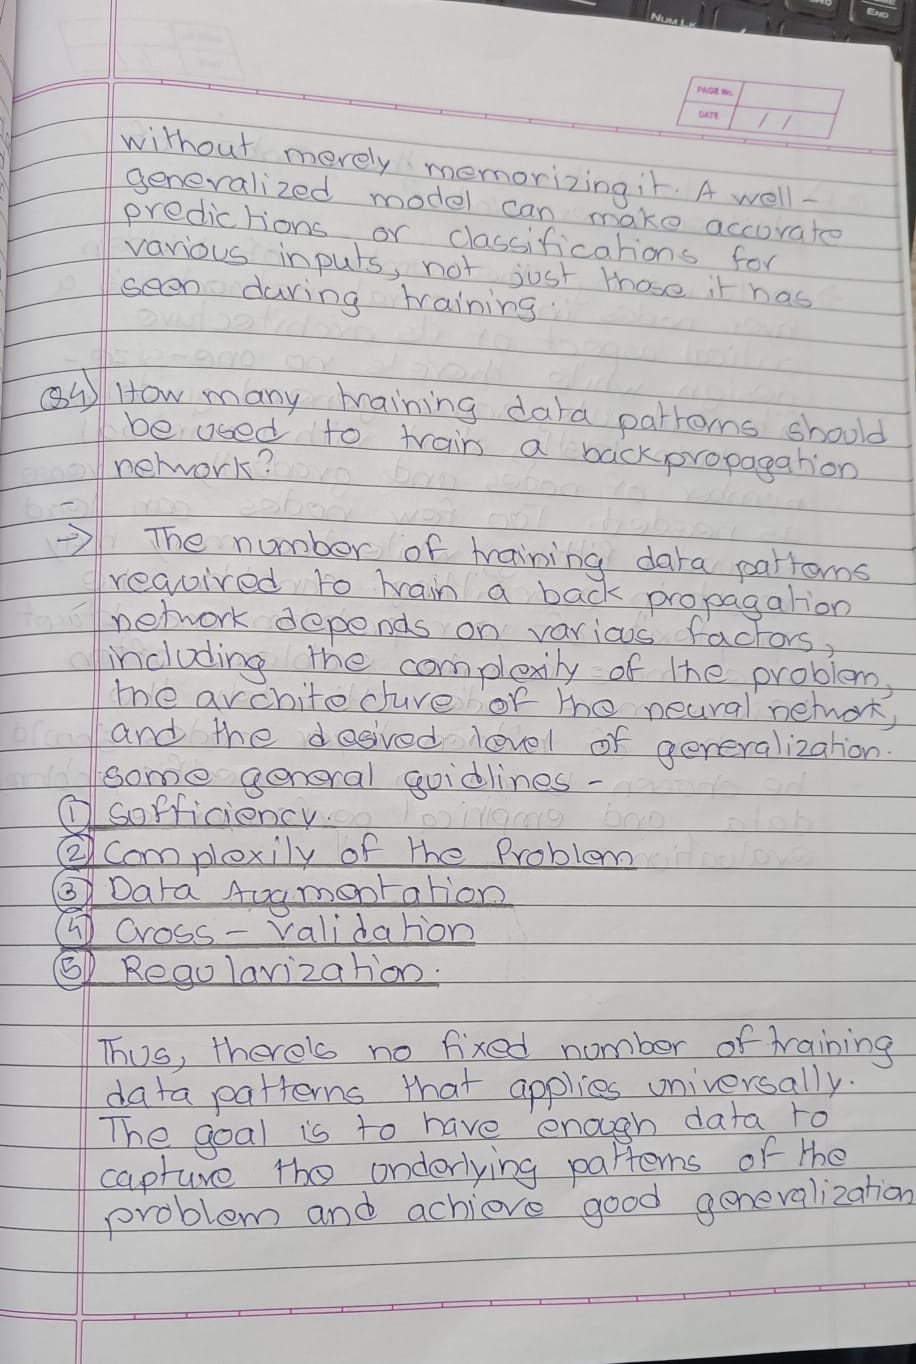 NUM LK
END
PAGE No.
DATE / /
without merely memorizing it. A well-
generalized model can make accurate
predictions or classifications for
various inputs, not just those it has
seen during training.
Q4) How many training data patterns should
be used to train a backpropagation
network?
→ The number of training data patterns
required to train a back propagation
network depends on various factors,
including the complexity of the problem,
the architecture of the neural network,
and the desired level of generalization.
some general guidlines -
① Sufficiency.
② Complexity of the Problem
③ Data Augmentation
④ Cross - Validation
⑤ Regularization.
Thus, there's no fixed number of training
data patterns that applies universally.
The goal is to have enough data to
capture the underlying patterns of the
problem and achieve good generalization